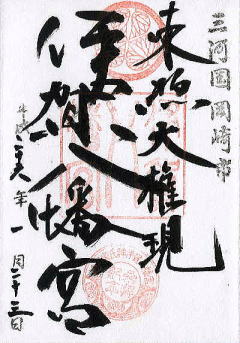 三河国岡崎市
東照大権現
伊賀八幡宮
平成二十六年一月二十三日